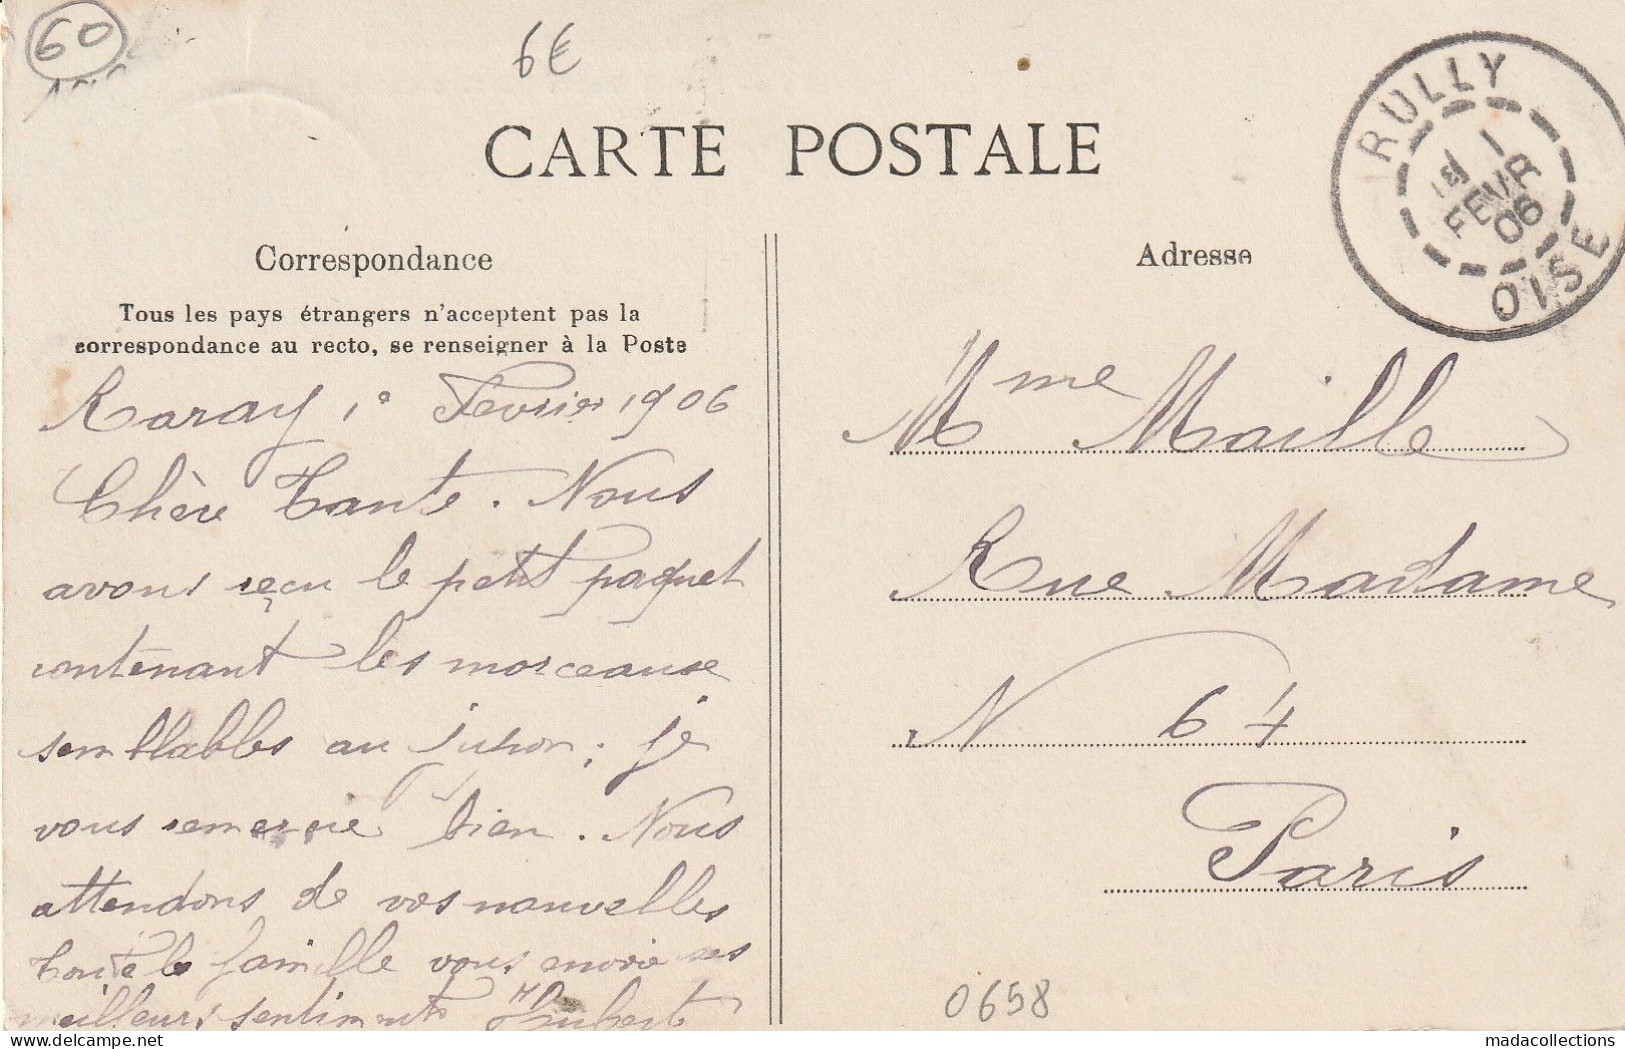 60
6€
CARTE POSTALE
RULLY
1
FEVR
06
OISE
Correspondance
Adresse
Tous les pays étrangers n'acceptent pas la
correspondance au recto, se renseigner à la Poste
Raray 1e Fevrier 1906
Chère Tante. Nous
avons reçu le petit paquet
contenant les morceaux
semblables au jupon ; je
vous remercie bien. Nous
attendons de vos nouvelles
toute la famille vous envoie ses
meilleurs sentiments Hubert
Mme Maille
Rue Madame
N 64
Paris
0658
madacollections